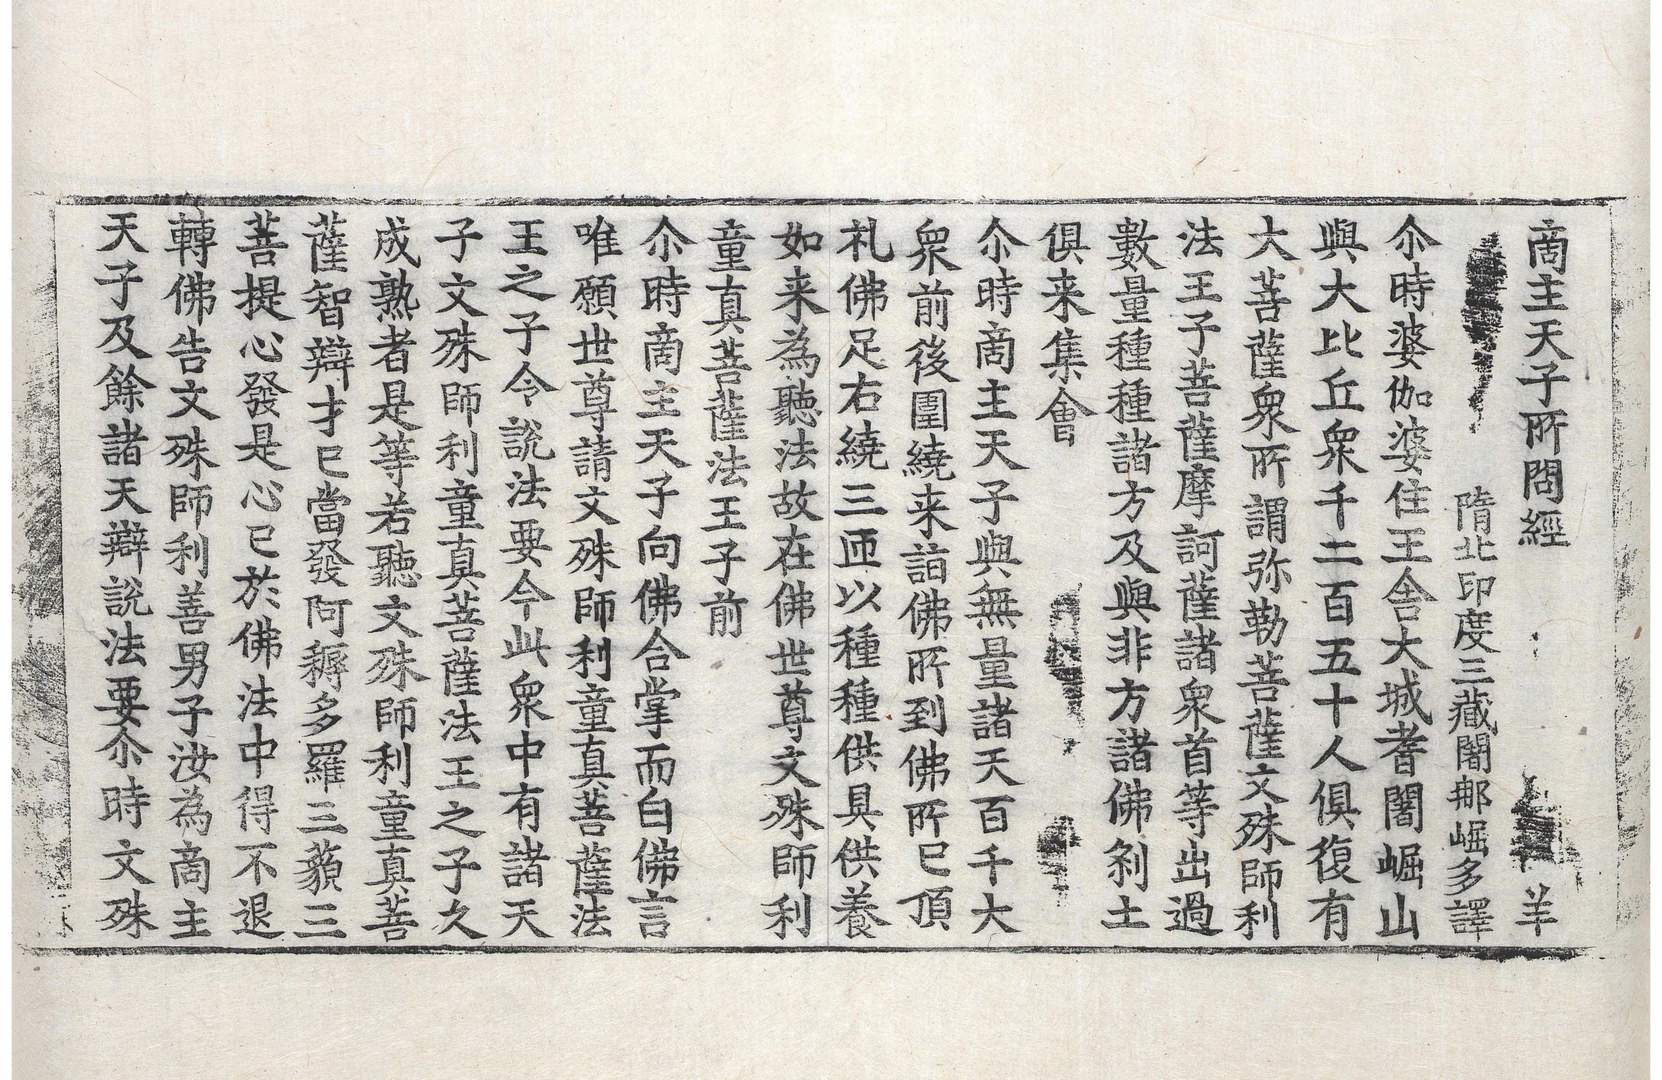 商主天子所問經 羊
隋北印度三藏闍那崛多譯
尒時婆伽婆住王舍大城耆闍崛山
與大比丘衆千二百五十人俱復有
大菩薩衆所謂弥勒菩薩文殊師利
法王子菩薩摩訶薩諸衆首等出過
數量種種諸方及與非方諸佛剎土
俱来集會
尒時商主天子與無量諸天百千大
衆前後圍繞来詣佛所到佛所已頂
礼佛足右繞三匝以種種供具供養
如来為聽法故在佛世尊文殊師利
童真菩薩法王子前
尒時商主天子向佛合掌而白佛言
唯願世尊請文殊師利童真菩薩法
王之子令說法要今此衆中有諸天
子文殊師利童真菩薩法王之子久
成熟者是等若聽文殊師利童真菩
薩智辯才已當發阿耨多羅三藐三
菩提心發是心已於佛法中得不退
轉佛告文殊師利善男子汝為商主
天子及餘諸天辯說法要尒時文殊